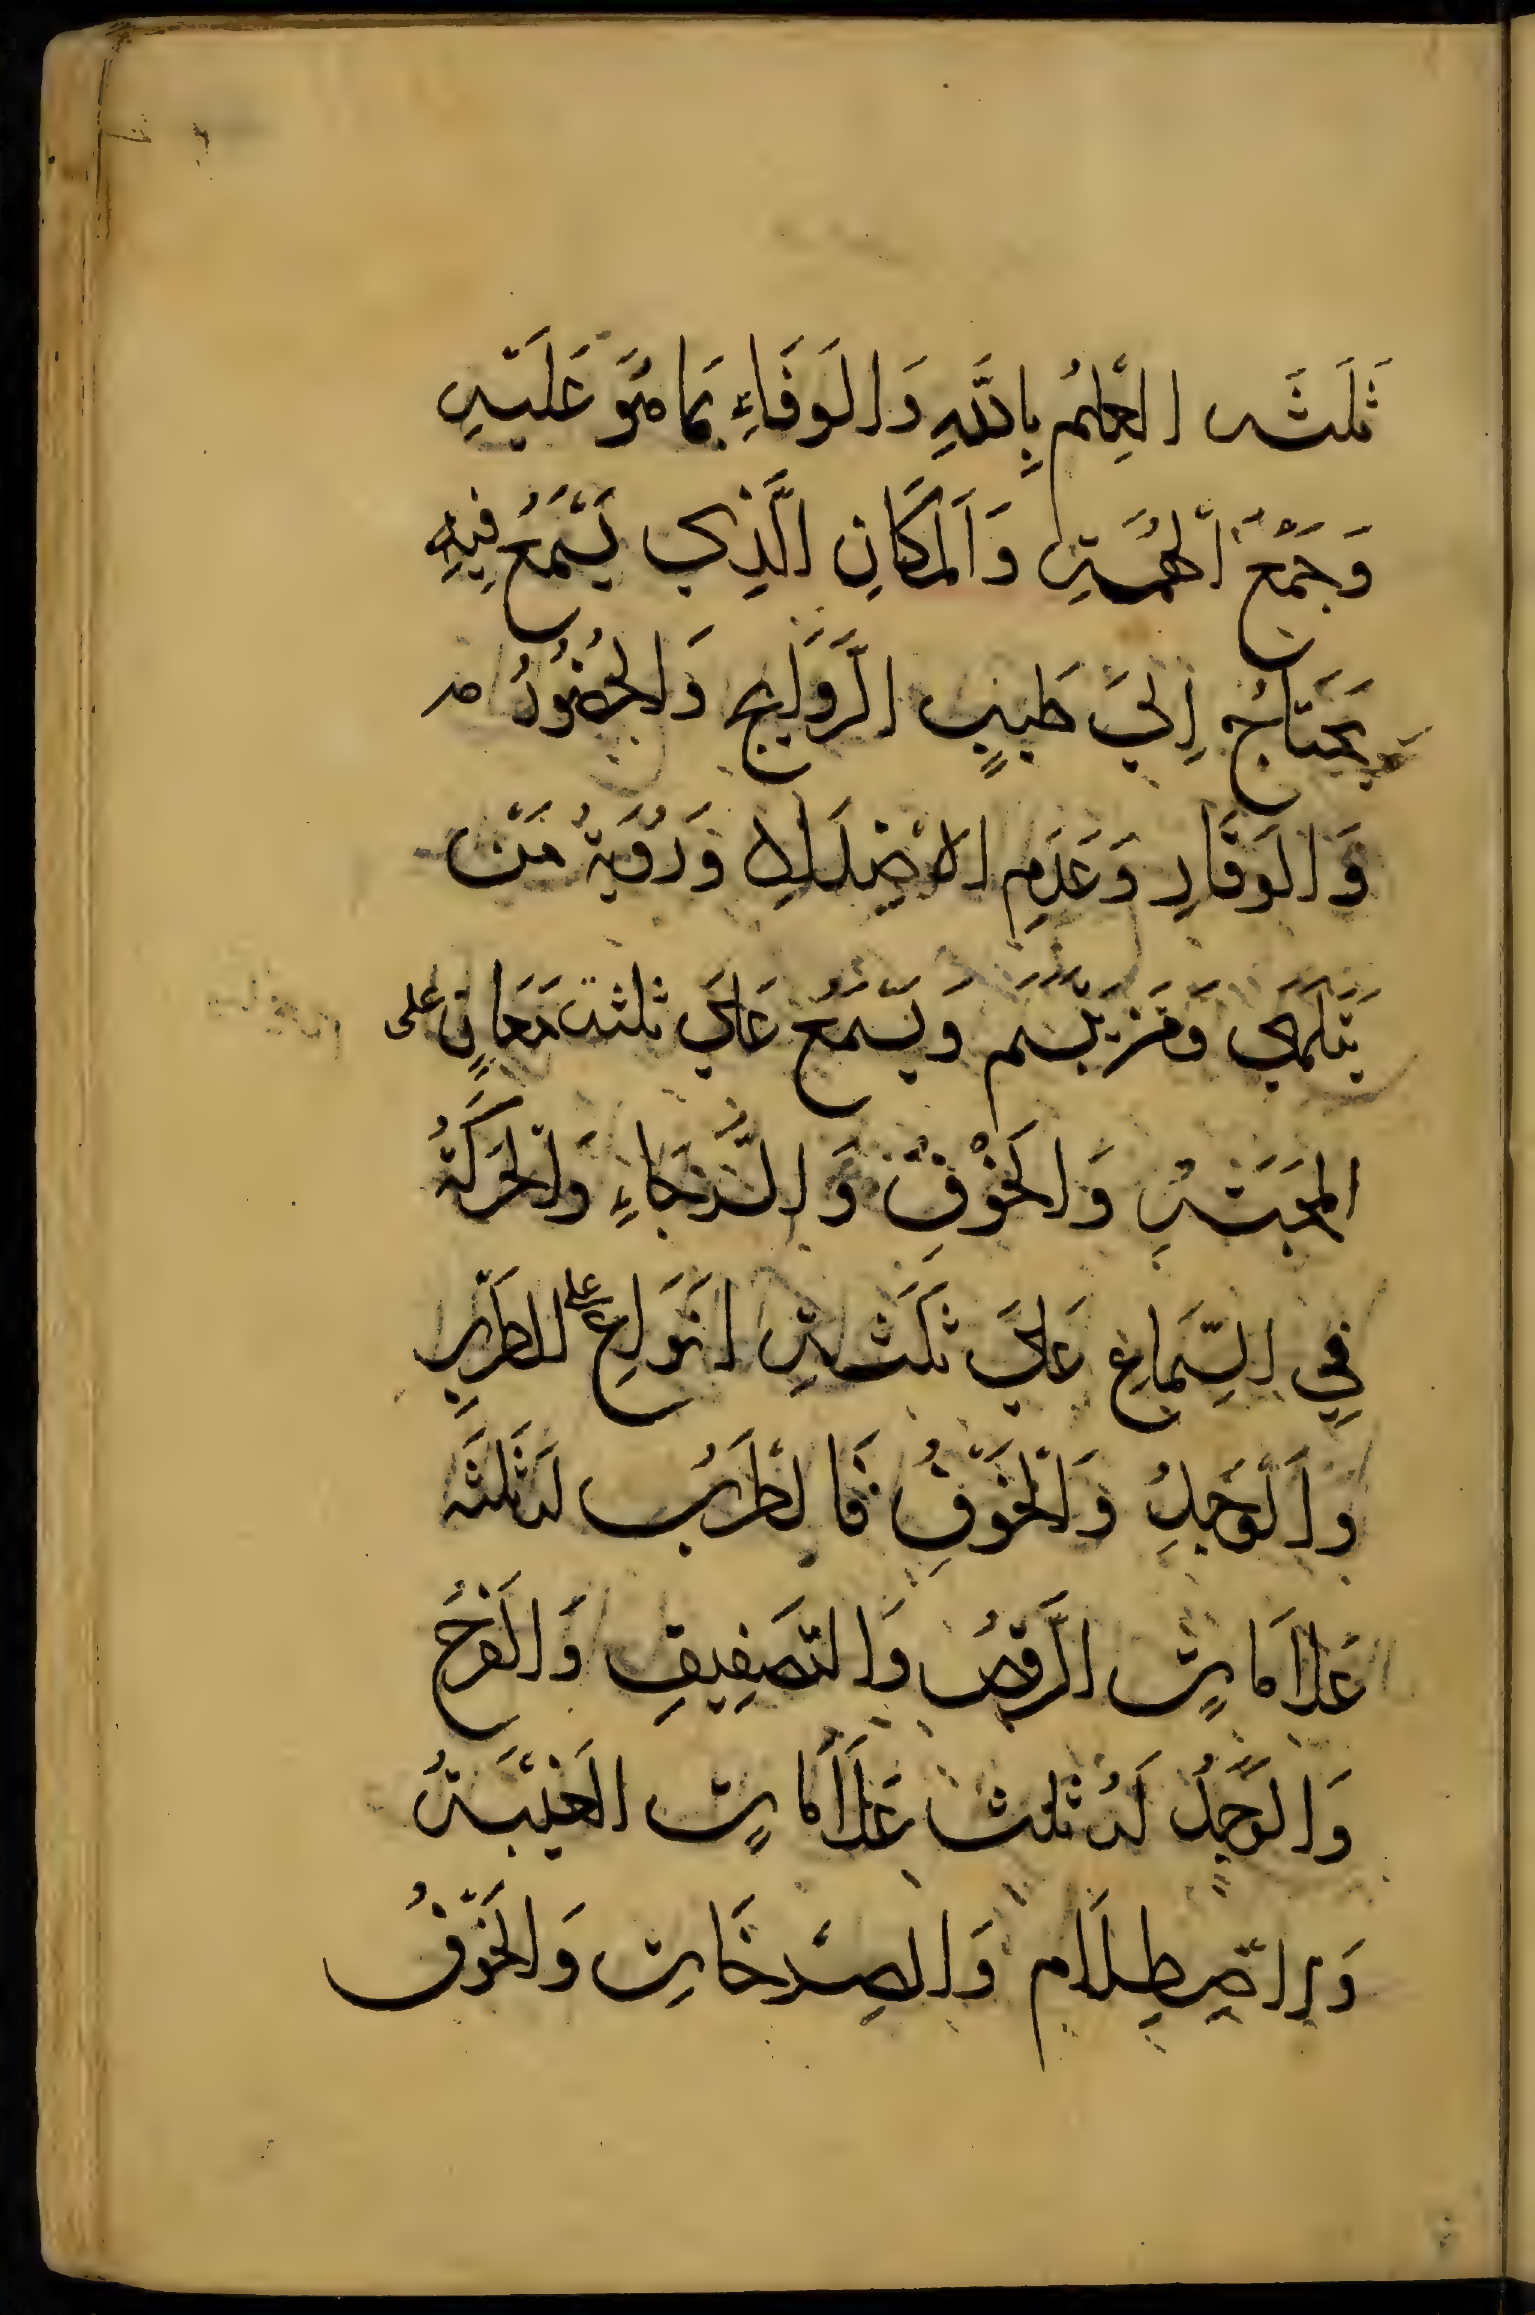 ثَلَثَه العِلْمُ بِاللَّهِ وَالوَفَاءِ بِمَا هُوَ عَلَيْهِ
وَجَمْعُ الهِمَّتِهِ وَالمَكَانِ الَّذِي يَسْمَعُ فِيهِ
يَحتَاجُ اِلَيَ طِيبٍ الرَّوَايِحِ وَالحُضُورُ
وَالوَقَارِ وَعَدَمِ الاضْدَادِ وَرُويَةُ مَنْ
يَتَلَهَّي وَمَن يَبْسَم وَيَسْمَعُ عَلَيَ ثلثة مَعَانٍ على
المَحَبَّتهِ وَالخَوْفِ وَالرَّجَاءِ وَالحَرَكَةُ
فِي السِّمَاعِ عَلَيَ ثَلَثَتِهِ انْوَاعِ على الطَّرَبِ
وَالوَجْدِ وَالخَوْفِ فَالطَرَبُ لَه ثَلثَه
عَلَامَاتٍ الرَّقْصُ وَالتَصْفِيقِ وَالفَرَحُ
وَالوَجْدُ لَهُ ثَلث عَلَامَاتٍ الغَيْبَةُ
وَالاصْطِلَام وَالصِرْخَاتِ وَالخَوْفُ